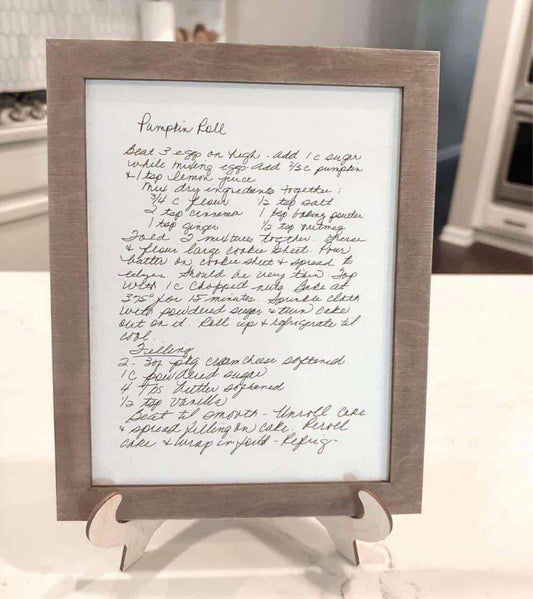 Pumpkin Roll
Beat 3 egg on high - add 1 c sugar
while mixing egg add 2/3 c pumpkin
& 1 tsp lemon juice
Mix dry ingredients together:
3/4 c flour 1/2 tsp salt
2 tsp cinnamon 1 tsp baking powder
1 tsp ginger 1/2 tsp nutmeg
Fold 2 mixtures together. Grease
& flour large cookie sheet. Pour
batter on cookie sheet & spread to
edges. Should be very thin. Top
with 1 c chopped nuts. Bake at
375° for 15 minutes. Sprinkle cloth
with powdered sugar & turn cake
out on it. Roll up & refrigerate til
cool.
Filling
2 - 3oz pkg cream cheese softened
1 c powdered sugar
4 tbs butter softened
1/2 tsp vanilla
Beat til smooth - Unroll cake
& spread filling on cake. Reroll
cake & wrap in foil - Refrig -